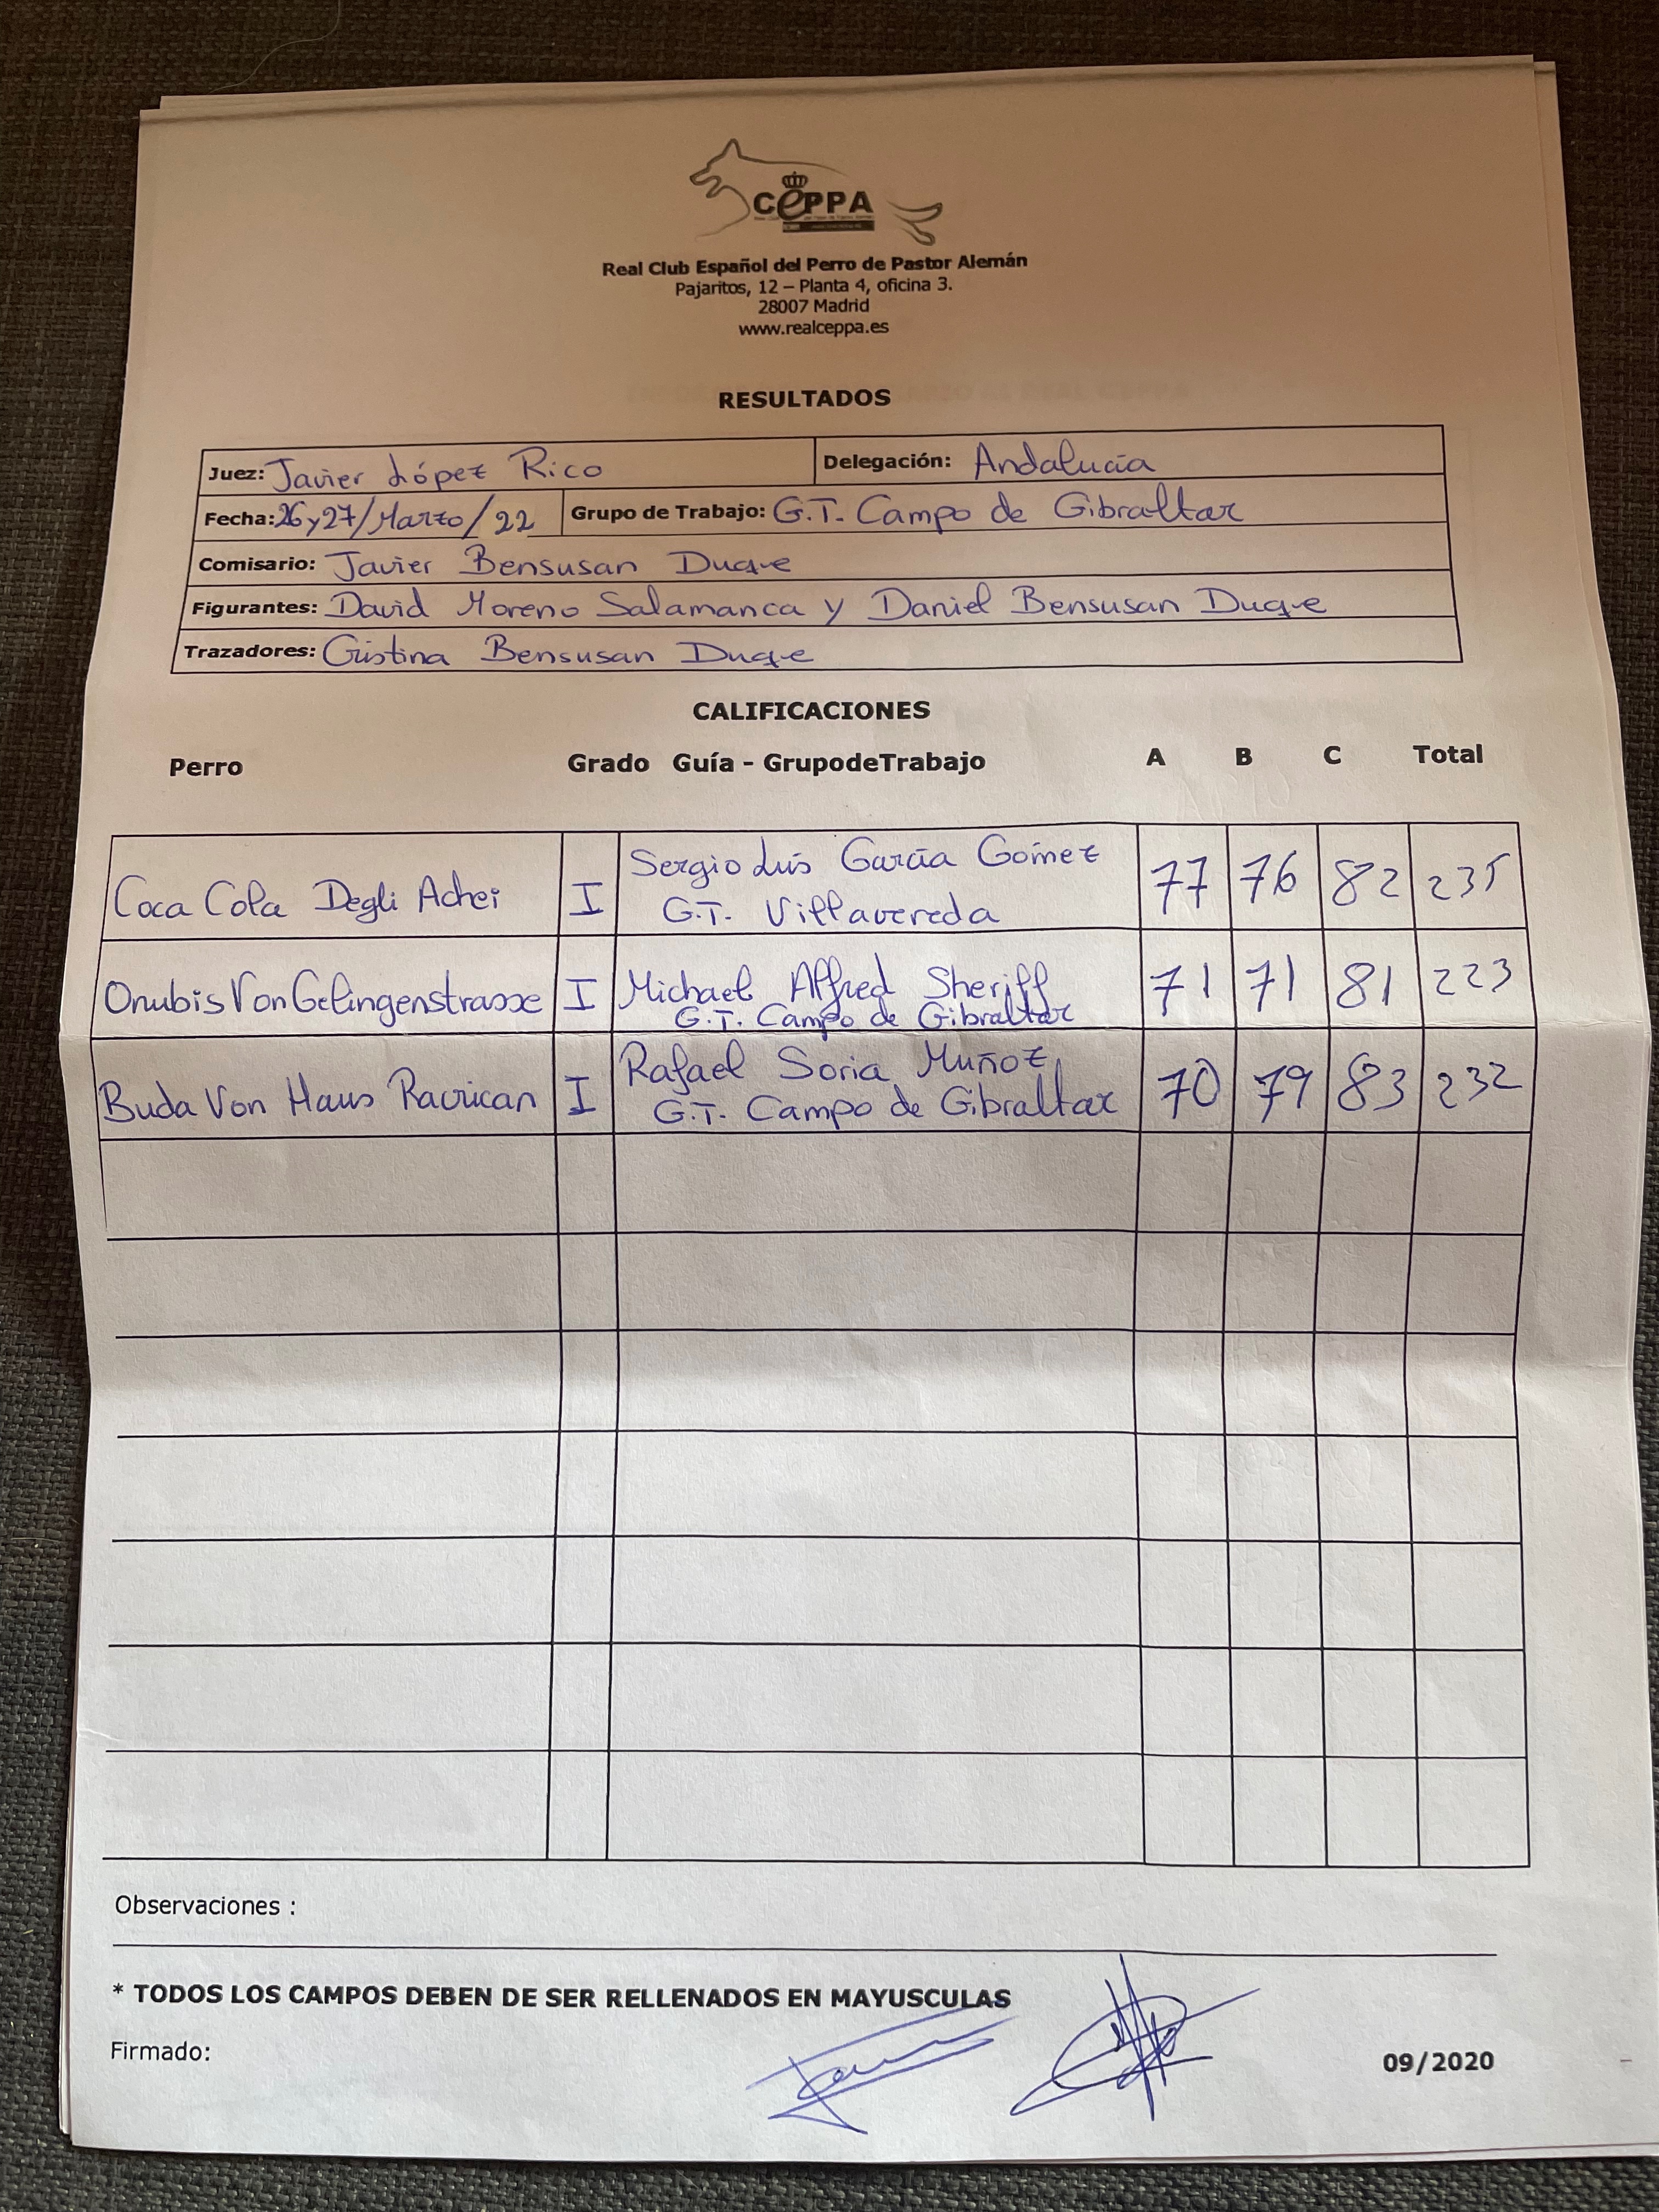 CePPA
Real Club Español del Perro de Pastor Alemán
Pajaritos, 12 – Planta 4, oficina 3.
28007 Madrid
www.realceppa.es
RESULTADOS
Juez: Javier López Rico Delegación: Andalucía
Fecha: 26 y 27/Marzo/22 Grupo de Trabajo: G.T. Campo de Gibraltar
Comisario: Javier Bensusan Duque
Figurantes: David Moreno Salamanca y Daniel Bensusan Duque
Trazadores: Cristina Bensusan Duque
CALIFICACIONES
Perro Grado Guía - GrupodeTrabajo A B C Total
Sergio Luis García Gómez
Coca Cola Degli Achei I G.T. Villavereda 77 76 82 235
Onubis Von Gelingenstrasse I Michael Alfred Sheriff 71 71 81 223
G.T. Campo de Gibraltar
Rafael Soria Muñoz
Buda Von Haus Racrican I G.T. Campo de Gibraltar 70 79 83 232
Observaciones :
* TODOS LOS CAMPOS DEBEN DE SER RELLENADOS EN MAYUSCULAS
Firmado:
09/2020